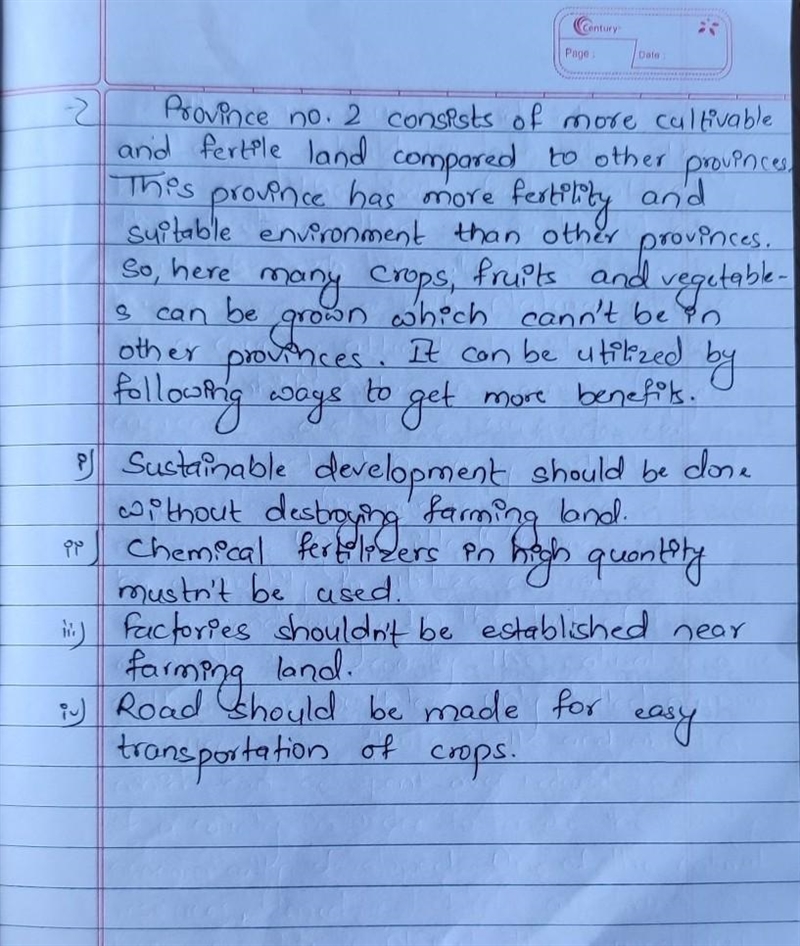 Century
Page :
Date :
→ Province no. 2 consists of more cultivable
and fertile land compared to other provinces.
This province has more fertility and
suitable environment than other provinces.
So, here many crops, fruits and vegetable-
s can be grown which cann't be in
other provinces. It can be utilized by
following ways to get more benefits.
i) Sustainable development should be done
without destroying farming land.
ii) Chemical fertilizers in high quantity
mustn't be used.
iii) Factories shouldn't be established near
farming land.
iv) Road should be made for easy
transportation of crops.